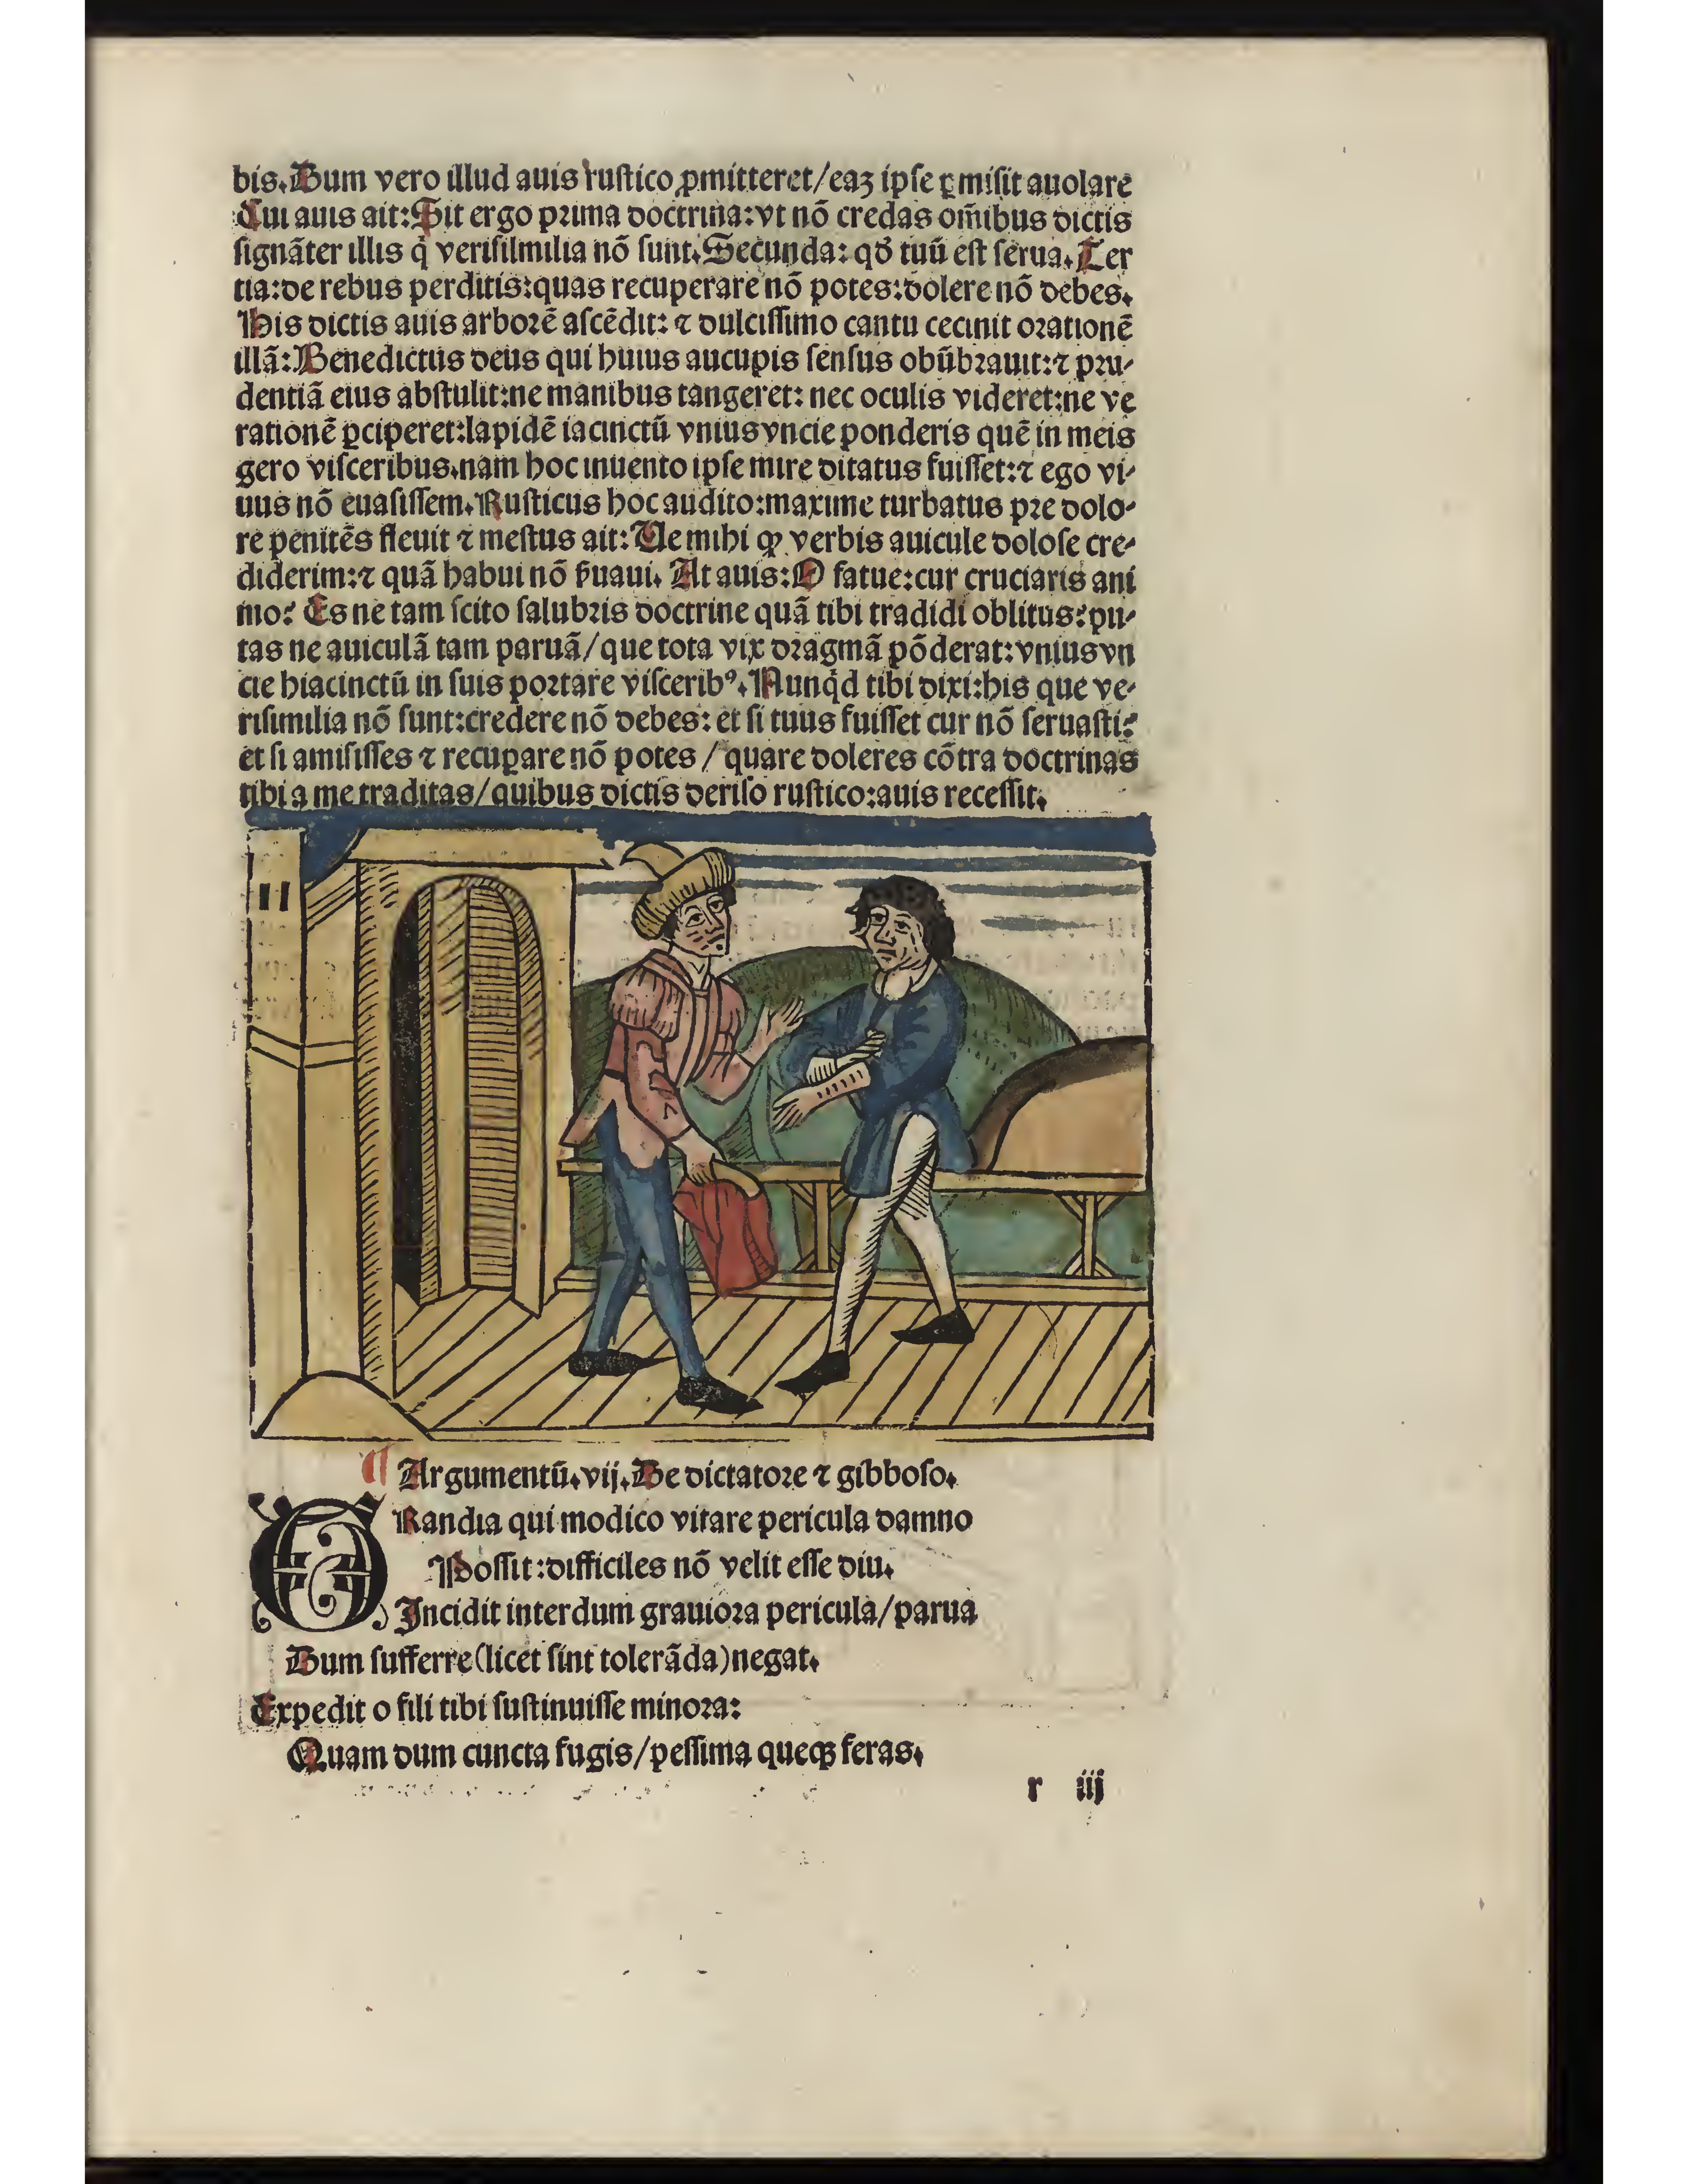 bis. Dum vero illud auis rustico ꝓmitteret/eaꝫ ipse ꝑmisit auolare
Cui auis ait: Sit ergo prima doctrina: vt nō credas om̄ibus dictis
signāter illis q̇ verisilmilia nō sunt. Secunda: qđ tuū est serua. Ter
tia: de rebus perditis: quas recuperare nō potes: dolere nō debes.
His dictis auis arborē ascēdit: ⁊ dulcissimo cantu cecinit orationē
illā: Benedictus deus qui huius aucupis sensus obūbrauit: ⁊ pru-
dentiā eius abstulit: ne manibus tangeret: nec oculis videret: ne ve
rationē ꝑciperet: lapidē iacinctū vnius vncie ponderis quē in meis
gero visceribus. nam hoc inuento ipse mire ditatus fuisset: ⁊ ego vi-
uus nō euasissem. Rusticus hoc audito: maxime turbatus pre dolo-
re penitēs fleuit ⁊ mestus ait: Ve mihi ꝙ verbis auicule dolose cre-
diderim: ⁊ quā habui nō ẜuaui. At auis: O fatue: cur cruciaris ani
mo? Es ne tam scito salubris doctrine quā tibi tradidi oblitus? pu-
tas ne auiculā tam paruā/que tota vix dragmā pōderat: vnius vn
cie hiacinctū in suis portare visceribꝰ. Nunq̇d tibi dixi: his que ve-
risimilia nō sunt: credere nō debes: et si tuus fuisset cur nō seruasti?
et si amisisses ⁊ recuꝑare nō potes / quare doleres cōtra doctrinas
tibi a me traditas/quibus dictis deriso rustico: auis recessit.
¶ Argumentū. vij. De dictatore ⁊ gibboso.
GRandia qui modico vitare pericula damno
Possit: difficiles nō velit esse diu.
Incidit interdum grauiora pericula/parua
Dum sufferre (licet sint tolerāda) negat.
Expedit o fili tibi sustinuisse minora:
Quam dum cuncta fugis/pessima queqꝫ feras.
r iij